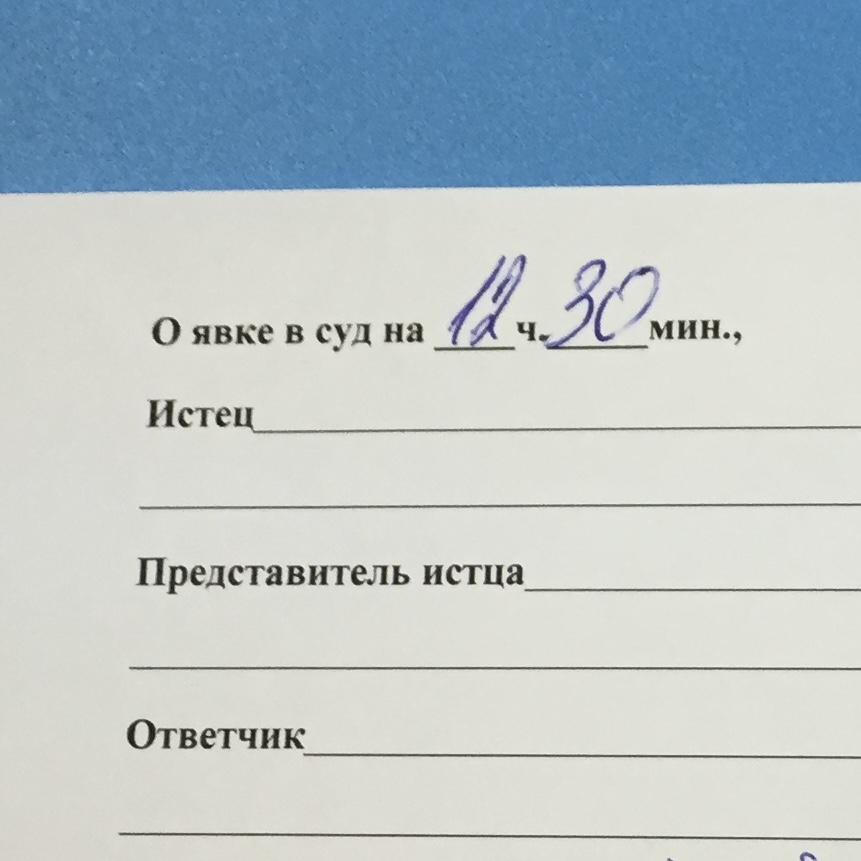 О явке в суд на 12 ч. 30 мин.,
Истец
Представитель истца
Ответчик